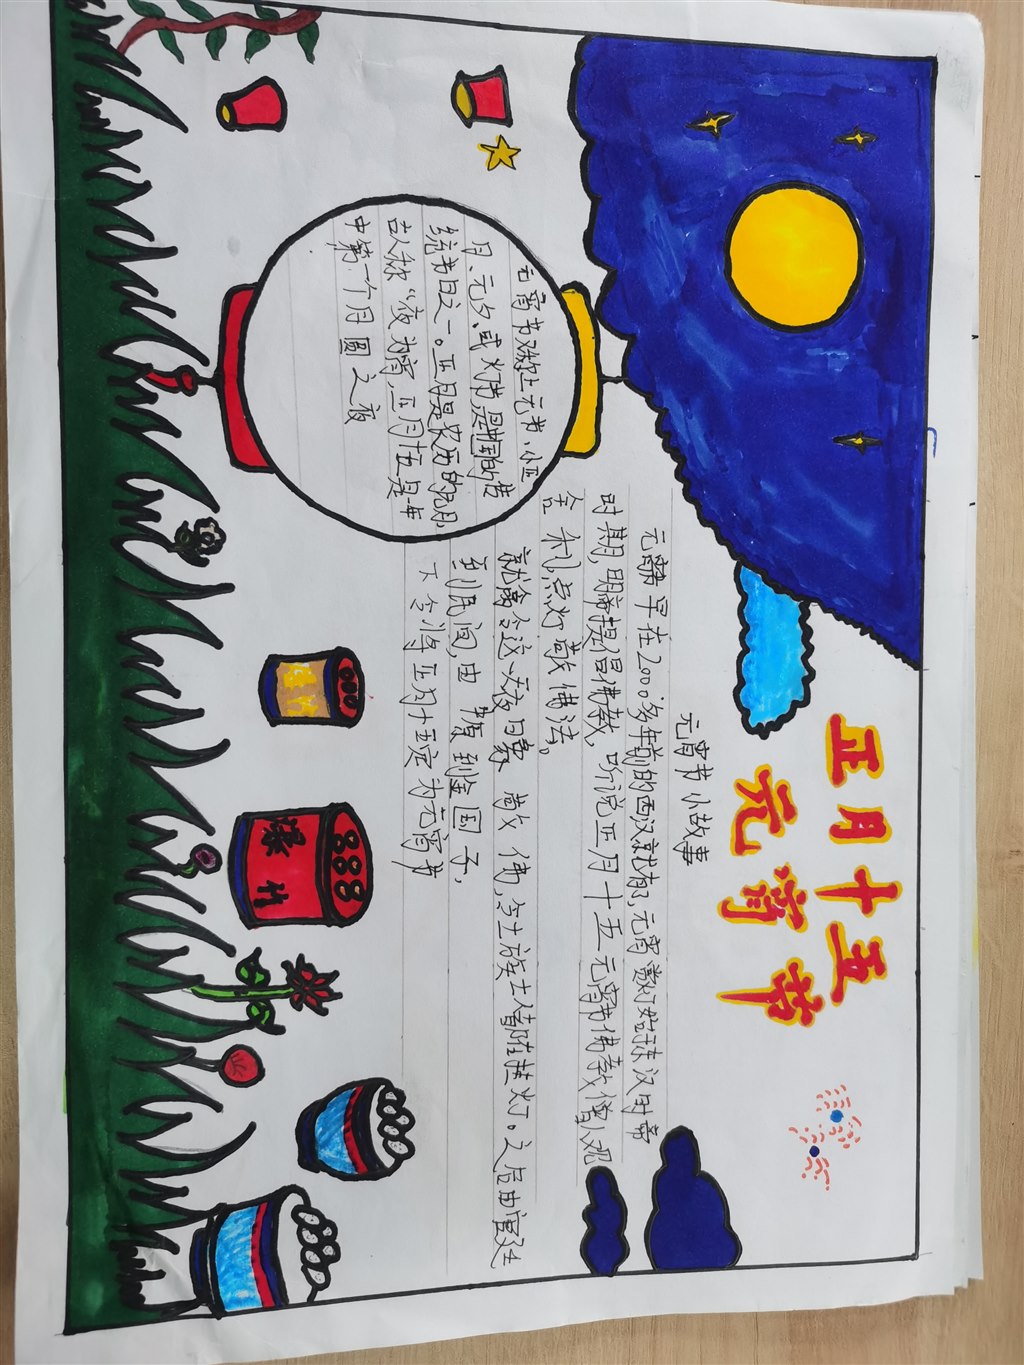 正月十五
元宵节
元宵节小故事
元宵节早在2000多年前的西汉就有,元宵赏灯始于东汉时帝
时期,明帝提倡佛教,听说正月十五元宵节佛教僧人观
舍利,点灯敬佛法。
就命令这一天夜日 敬佛,令士族士 挂灯。之后由宫廷
到民间,由 到全国
下令将正月十五定为元宵节
元宵节又称上元节、小正
月、元夕、或灯节是中国的传
统节日之一。正月是农历的元月,
古人称“夜为宵,正月十五是一年
中第一个月圆之夜
888
爆竹